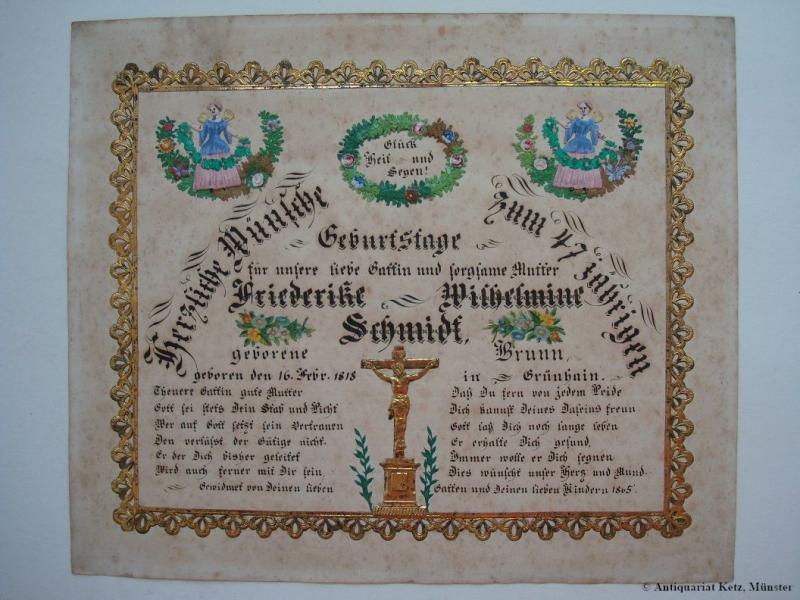 Glück
Heil und
Segen!
Herzliche Wünsche
zum 47 jährigen
Geburtstage
für unsere liebe Gattin und sorgsame Mutter
Friederike Wilhelmine
Schmidt,
geborene Brunn,
geboren den 16. Febr. 1818 in Grünhain.
Theuere Gattin gute Mutter
Gott sei stets Dein Stab und Licht
Wer auf Gott setzt sein Vertrauen
Den verlässt der Gütige nicht.
Er der Dich bisher geleitet
Wird auch ferner mit Dir sein,
Daß Du fern von jedem Leide
Dich kannst Deines Daseins freun
Gott laß Dich noch lange leben
Er erhalte Dich gesund,
Immer wolle er Dich segnen
Dies wünscht unser Herz und Mund.
Gewidmet von Deinen lieben Gatten und Deinen lieben Kindern 1865
© Antiquariat Ketz, Münster